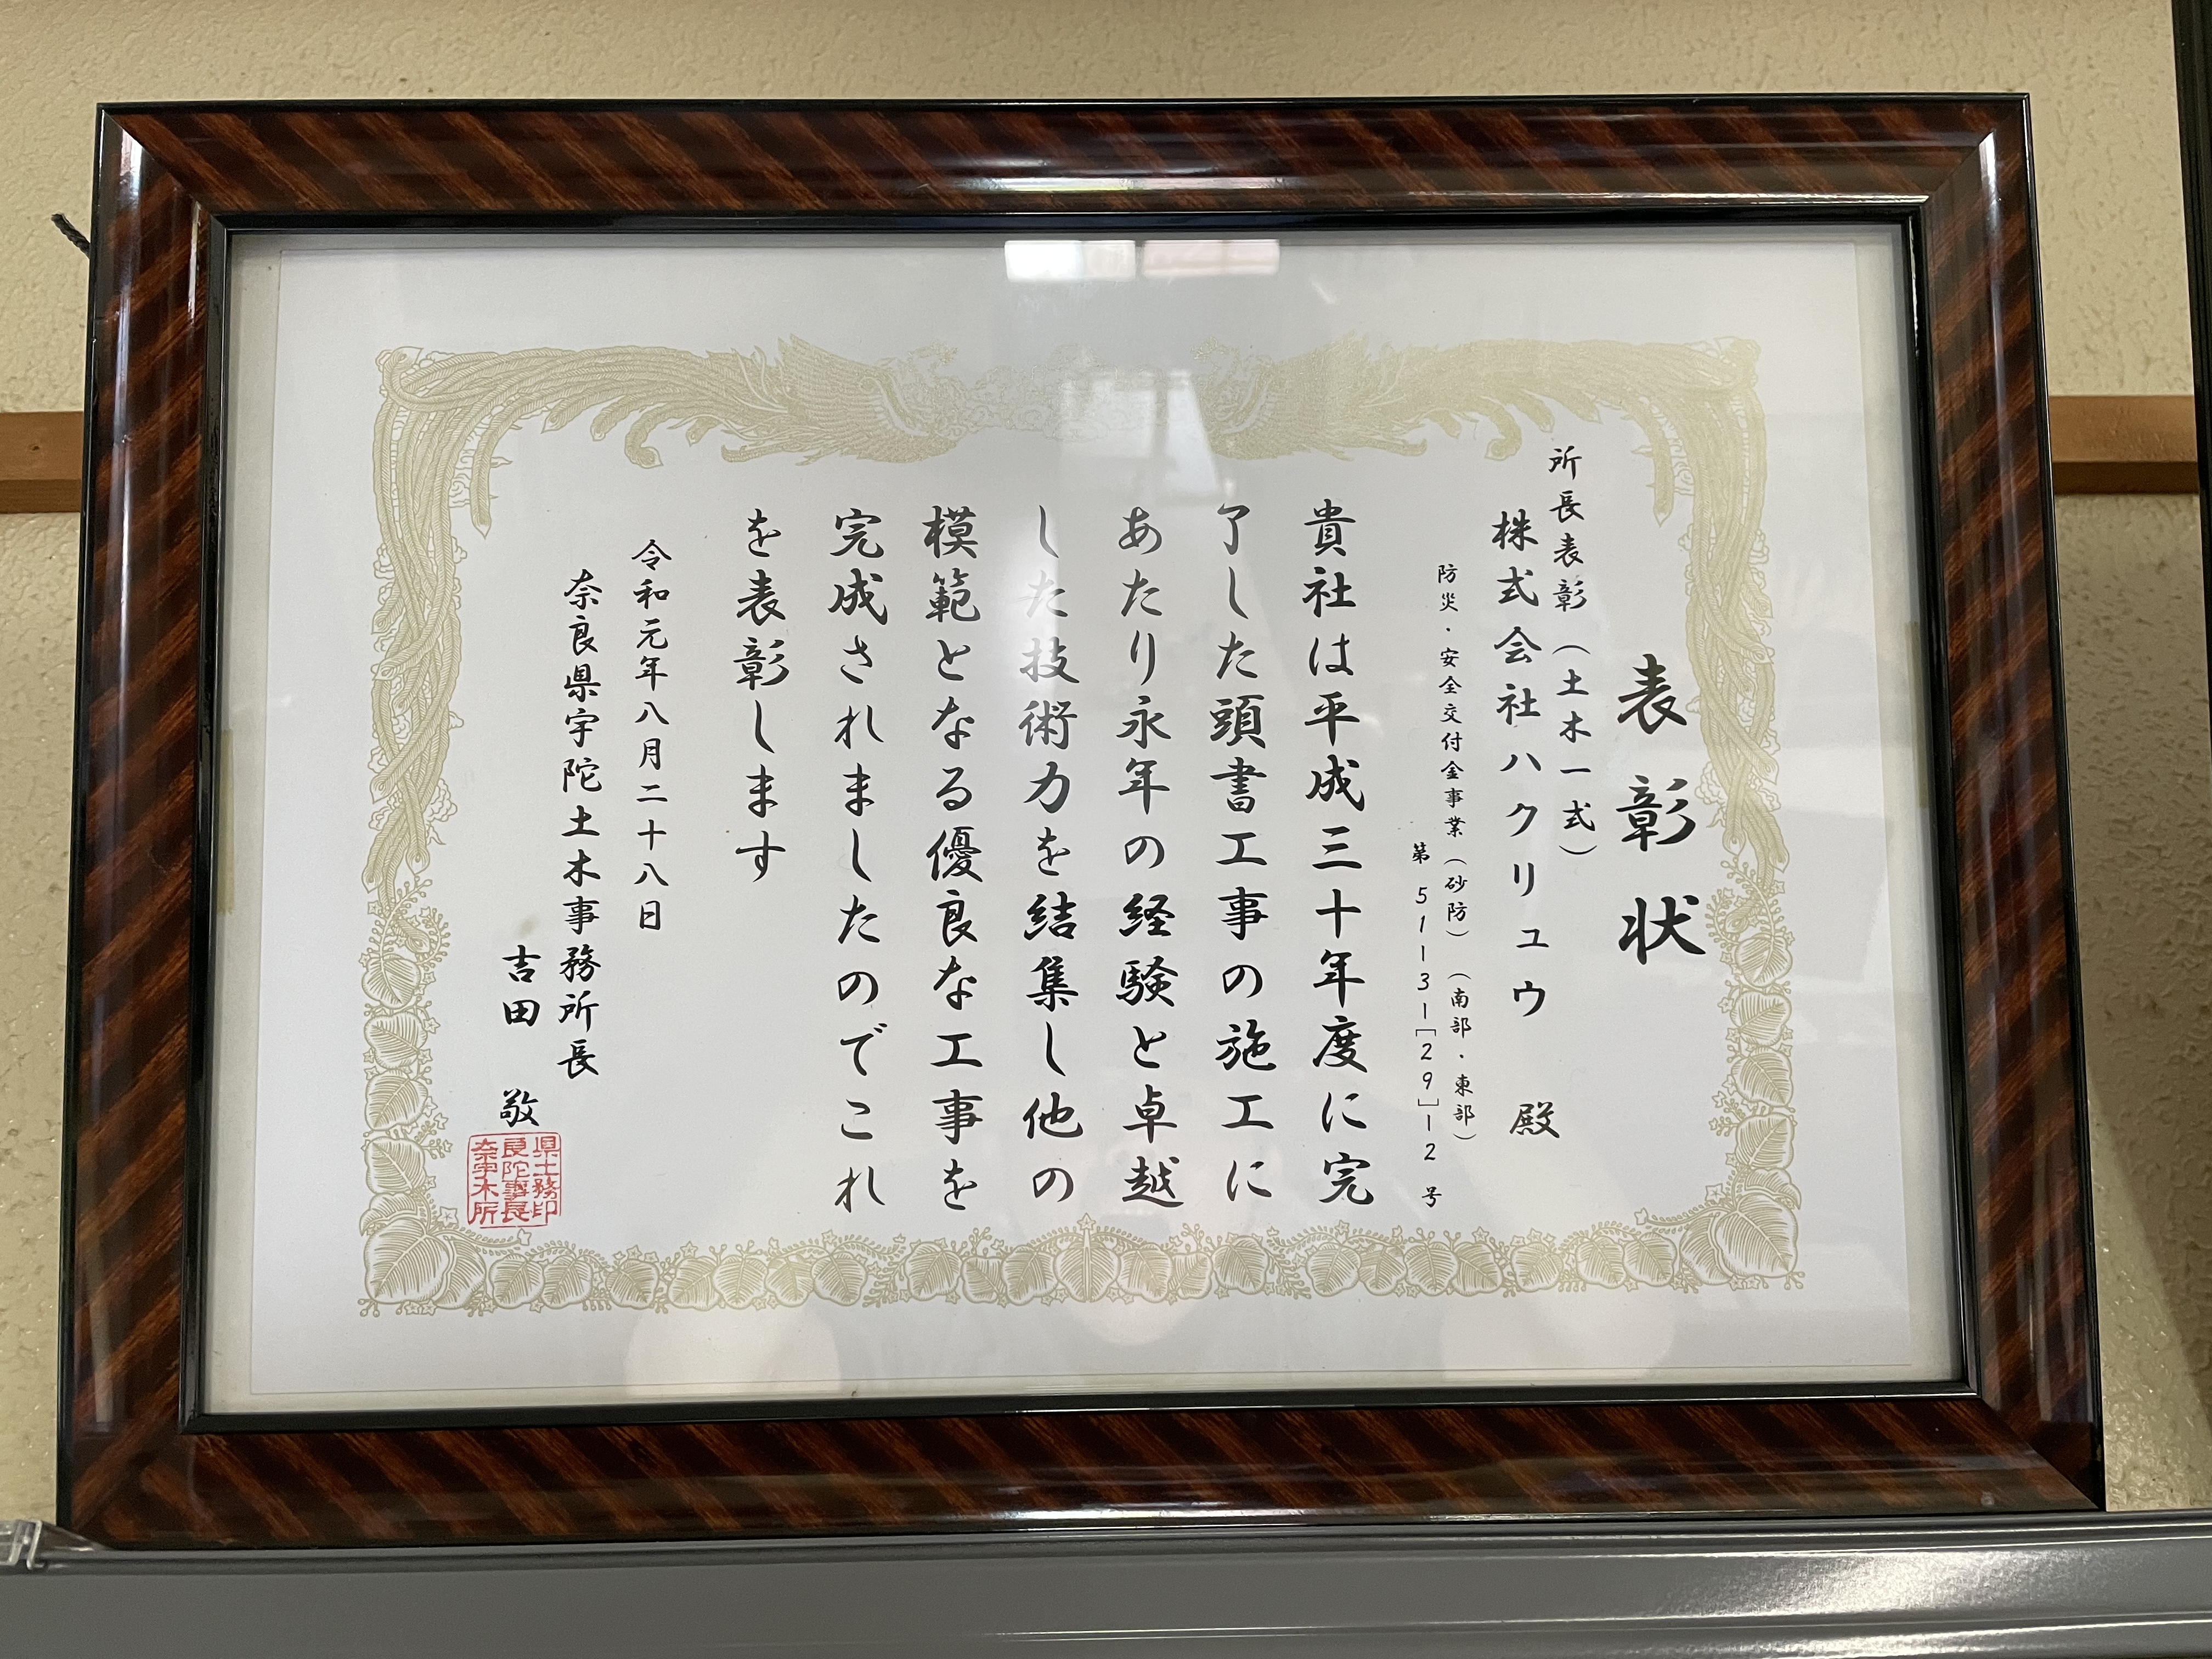 表彰状
所長表彰(土木一式)
株式会社ハクリュウ 殿
防災・安全交付金事業(砂防)(南部・東部)
第51131[29]12号
貴社は平成三十年度に完
了した頭書工事の施工に
あたり永年の経験と卓越
した技術力を結集し他の
模範となる優良な工事を
完成されましたのでこれ
を表彰します
令和元年八月二十八日
奈良県宇陀土木事務所長
吉田 敬
県土務印
良陀事長
奈宇木所